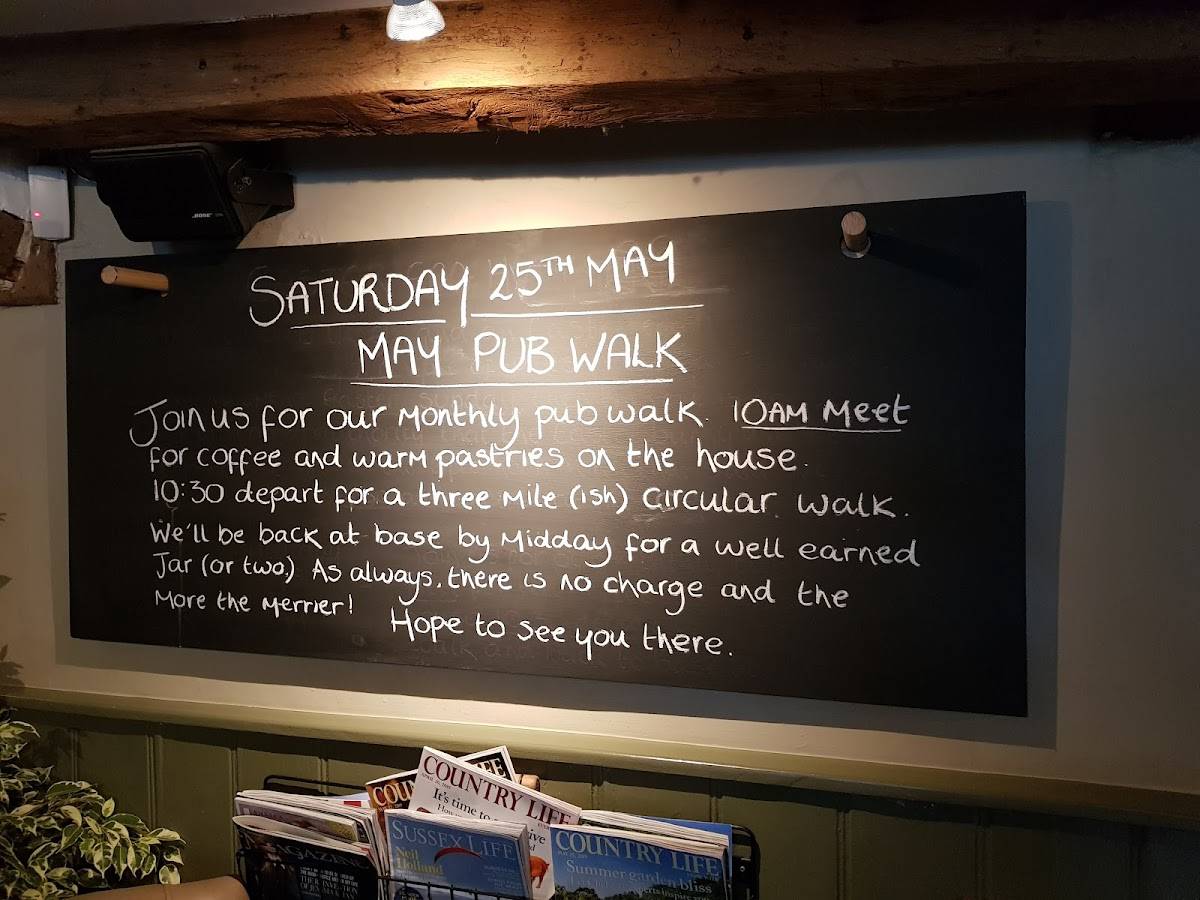 BOSE
SATURDAY 25TH MAY
MAY PUB WALK
Join us for our monthly pub walk. 10AM Meet
for coffee and warm pastries on the house.
10:30 depart for a three mile (ish) circular walk.
We'll be back at base by Midday for a well earned
Jar (or two) As always, there is no charge and the
More the Merrier! Hope to see you there.
COUNTRY LIFE
It's time to
SUSSEX LIFE
Neil
Holland
COUNTRY LIFE
Summer garden bliss
MAGAZINE